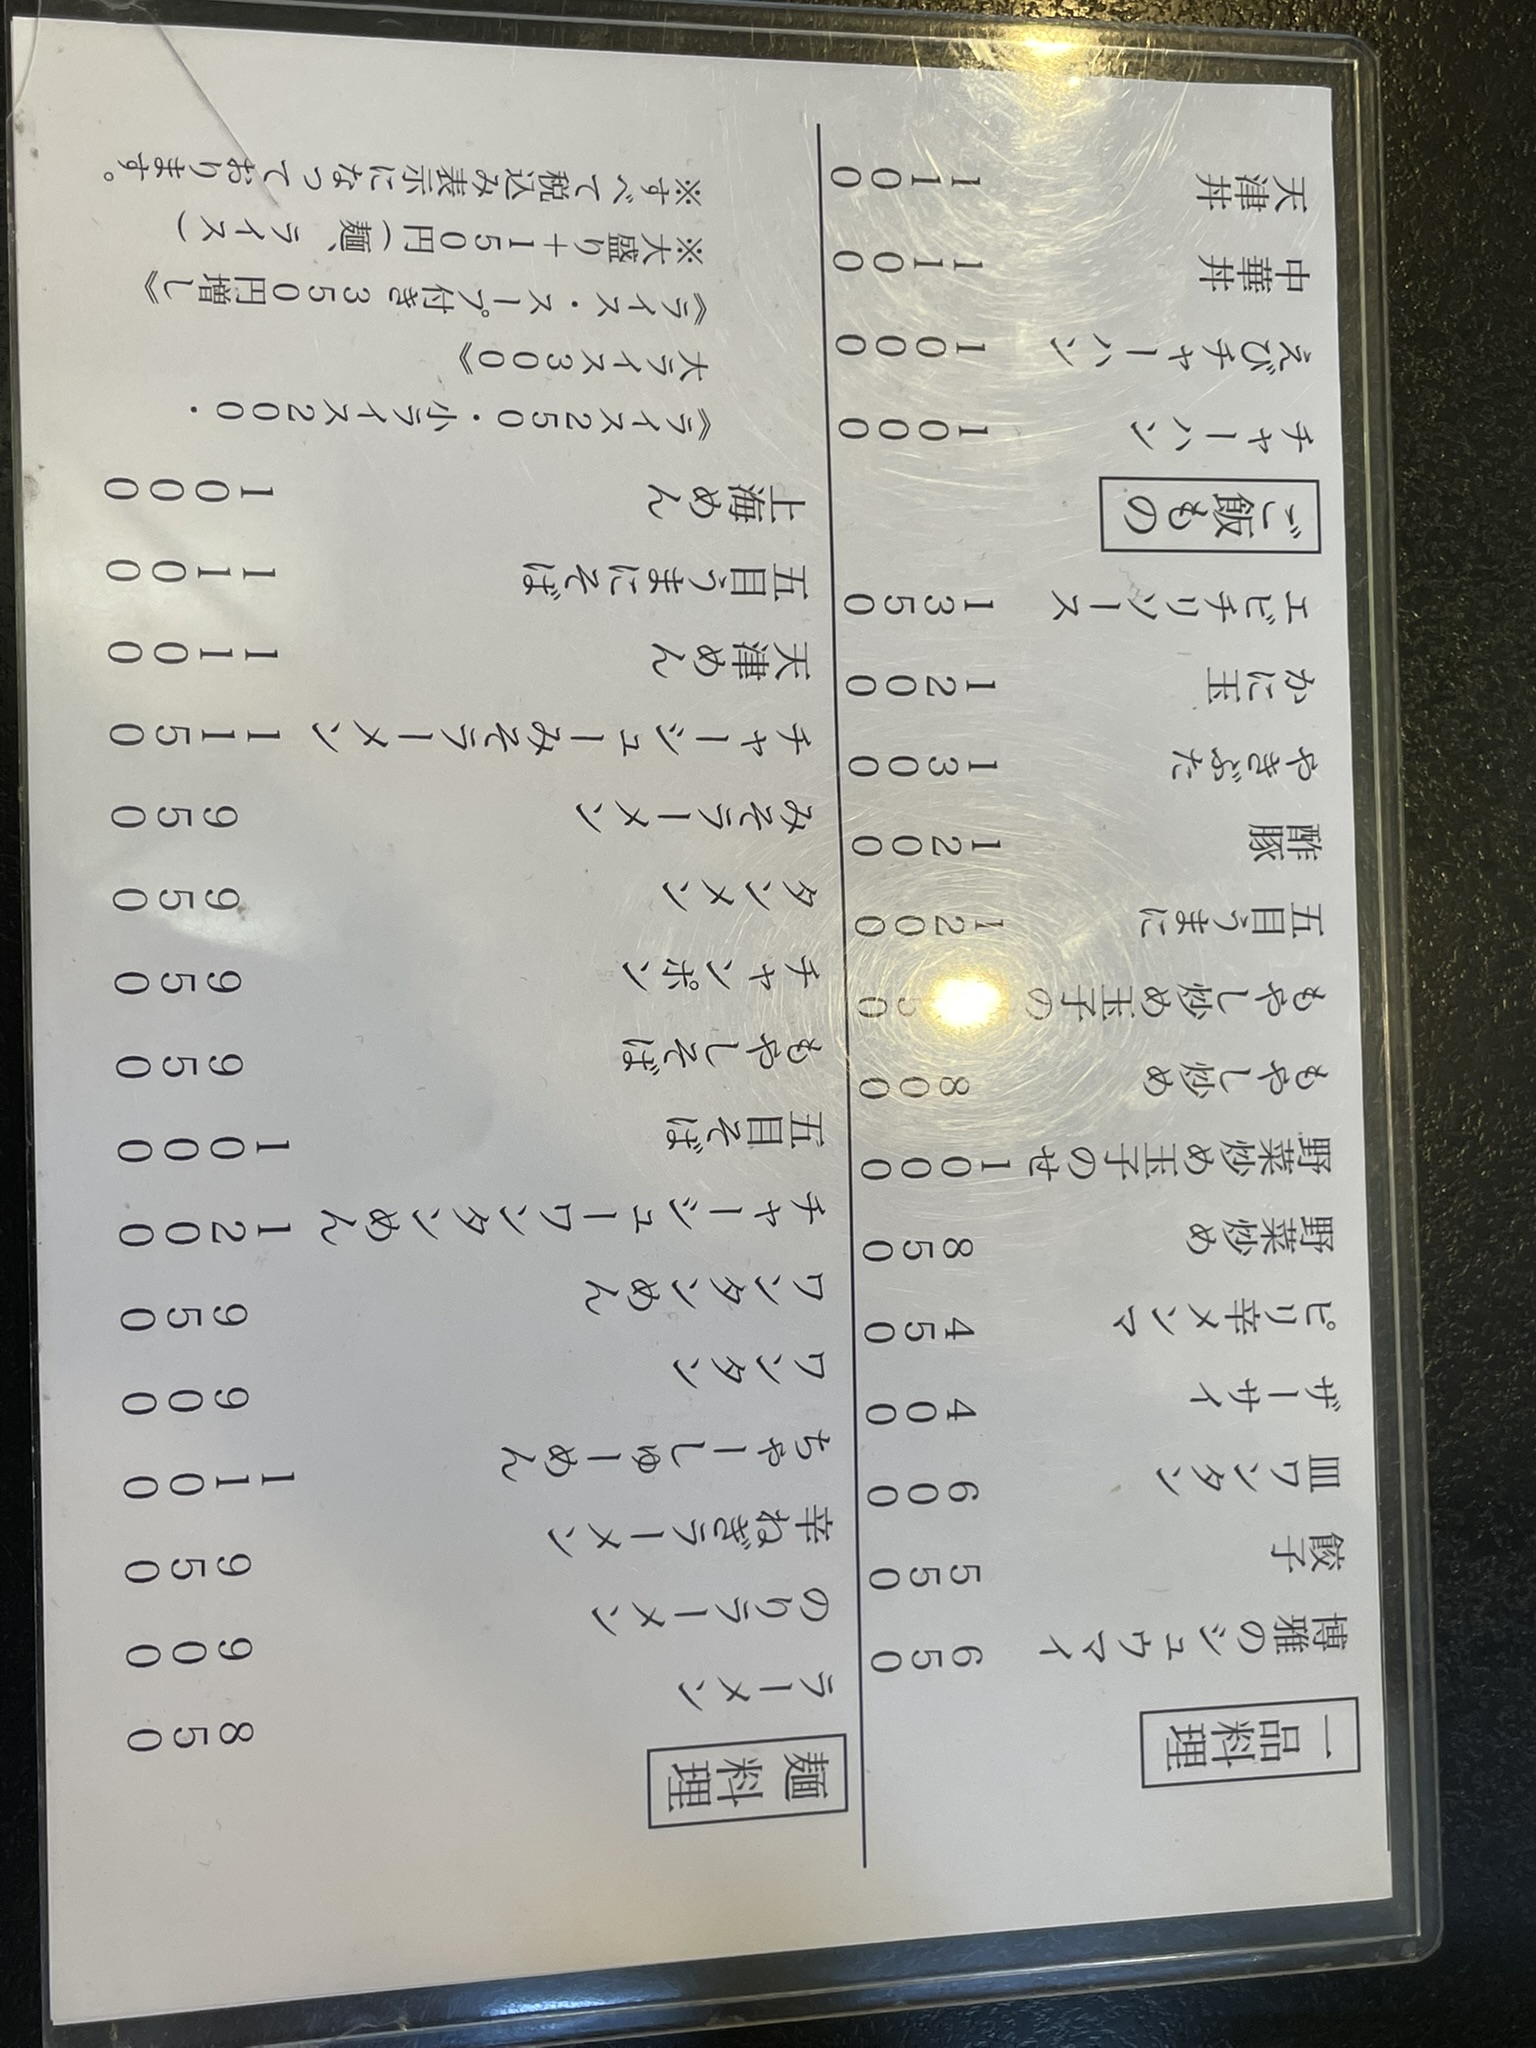 一品料理
博雅のシュウマイ 650
餃子 550
皿ワンタン 600
ザーサイ 400
ピリ辛メンマ 450
野菜炒め 850
野菜炒め玉子のせ 1000
もやし炒め 800
もやし炒め玉子の 50
五目うまに 1200
酢豚 1200
やきぶた 1300
かに玉 1200
エビチリソース 1350
ご飯もの
チャーハン 1000
えびチャーハン 1000
中華丼 1100
天津丼 1100
麺料理
ラーメン 850
のりラーメン 900
辛ねぎラーメン 950
ちゃーしゅーめん 1100
ワンタン 900
ワンタンめん 950
チャーシューワンタンめん 1200
五目そば 1000
もやしそば 950
チャンポン 950
タンメン 950
みそラーメン 950
チャーシューみそラーメン 1150
天津めん 1100
五目うまにそば 1100
上海めん 1000
《ライス250・小ライス200・
大ライス300》
《ライス・スープ付き350円増し》
※大盛り+150円(麺、ライス)
※すべて税込み表示になっております。